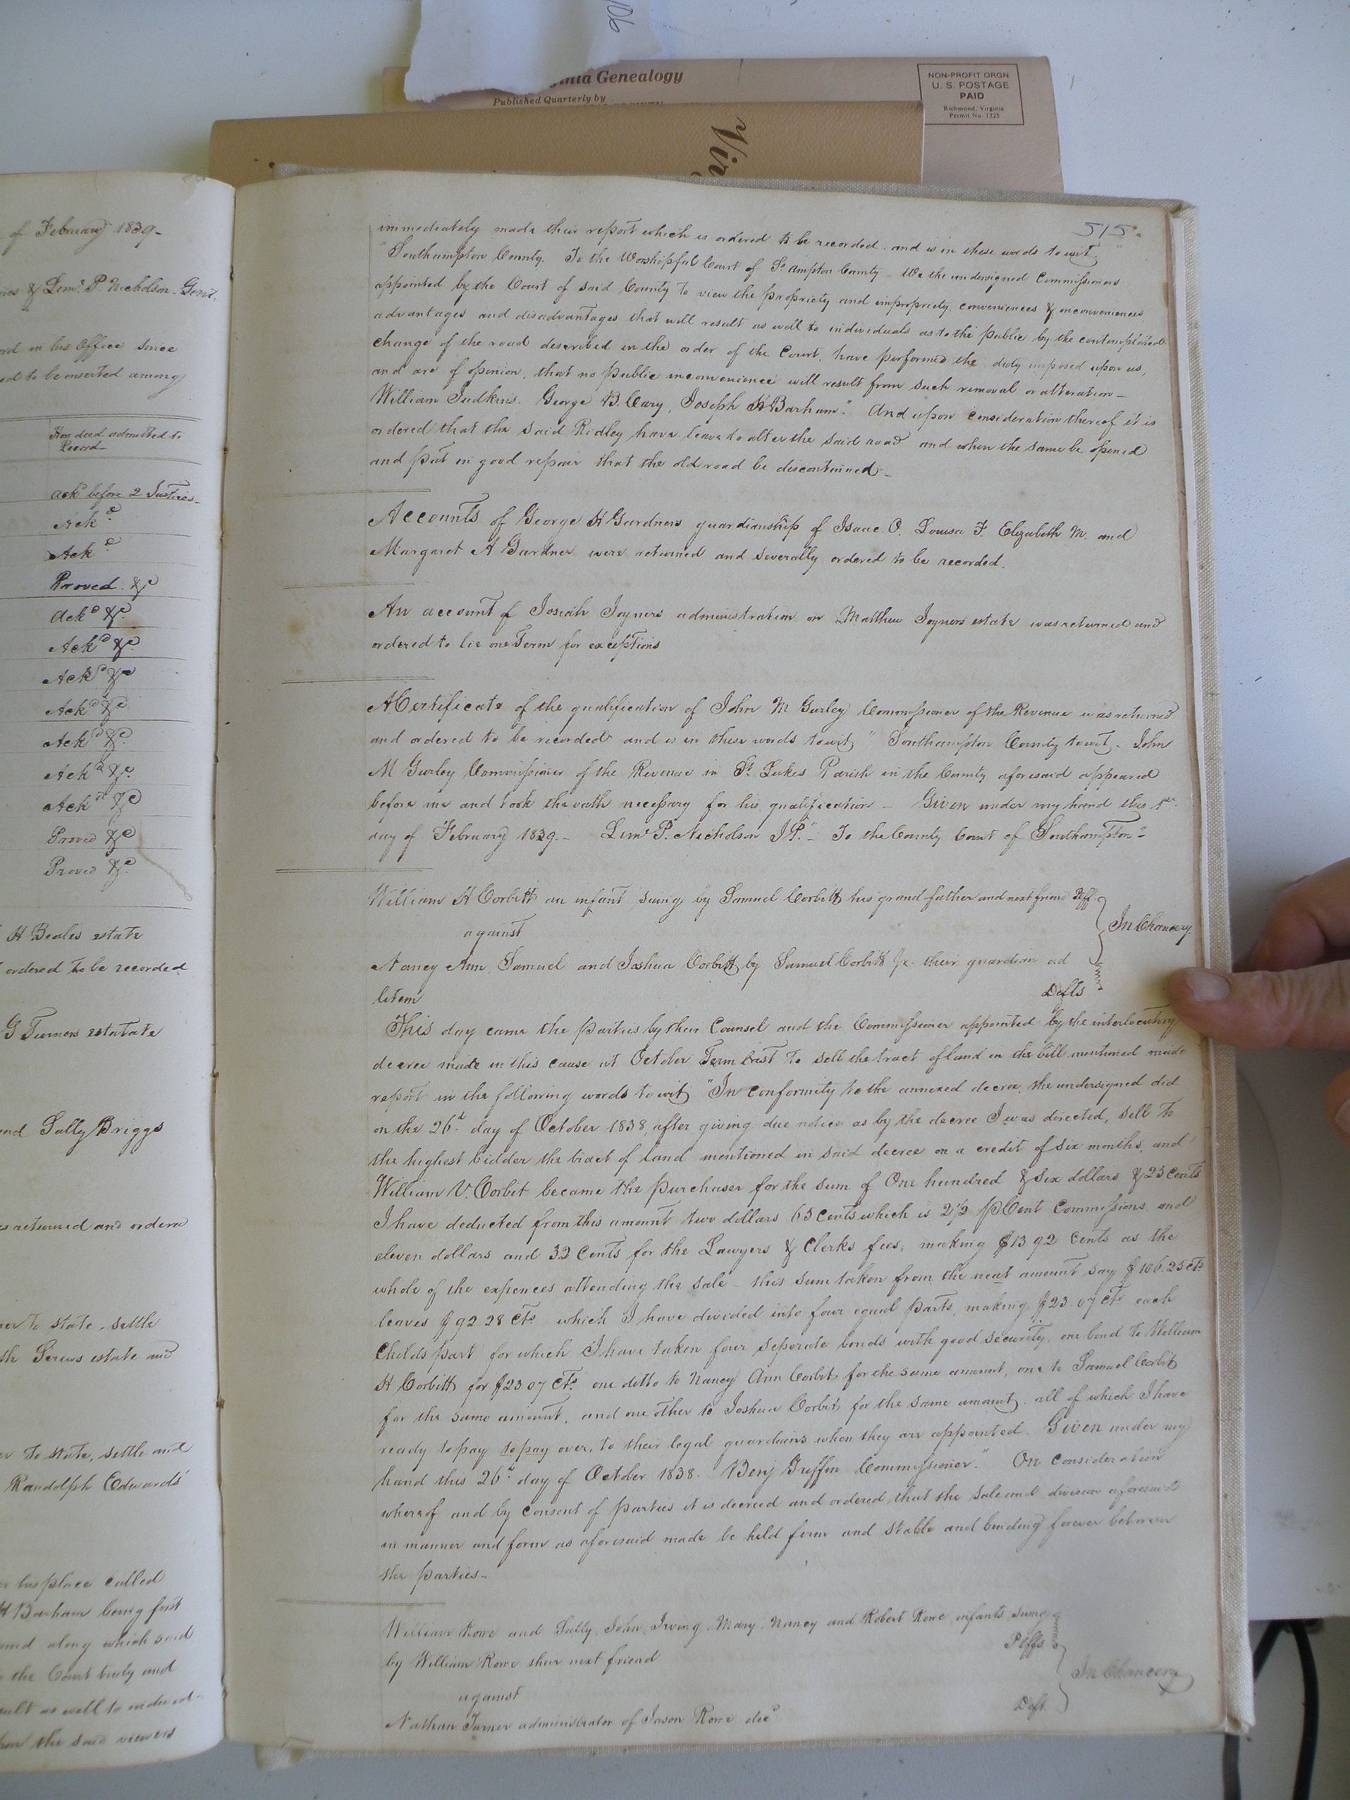 106
Virginia Genealogy
Published Quarterly by
NON-PROFIT ORGN
U. S. POSTAGE
PAID
Richmond, Virginia
Permit No. 1325
Vir
of February 1839-
& Lemˡ P. Nicholson. Gent.
in his Office since
to be inserted among
How deed admitted to
Record-
ackᵈ before 2 Justices-
Ackᵈ
Ackᵈ
Proved &c
Ackᵈ &c
Ackᵈ &c
Ackᵈ &c
Ackᵈ &c
Ackᵈ &c
Ackᵈ &c
Ackᵈ &c
Proved &c
Proved &c
H Beales estate
ordered to be recorded
G Turners estatate
and Sally Briggs
returned and ordered
to state, settle
estate and
to state, settle and
Randolph Edwards'
his place called
H Barham being first
and along which said
the Court truly and
as well to individ-
the said viewers
515.
immediately made their report which is ordered to be recorded. and is in these words to wit,
"Southampton County. To the Worshipful Court of Sᵒampton County - We the undersigned Commissioners
appointed by the Court of said County to view the propriety and impropriety, conveniences & inconveniences
advantages and disadvantages that will result as well to individuals as to the public by the contemplated
change of the road described in the order of the Court, have performed the duty imposed upon us,
and are of opinion, that no public inconvenience will result from such removal or alteration-
William Judkins. George B. Cary, Joseph H Barham". And upon consideration thereof it is
ordered that the said Ridley have leave to alter the said road and when the same be opened
and put in good repair that the old road be discontinued-
Accounts of George H Gardners guardianship of Isaac O. Louisa F. Elizabeth M. and
Margaret A Gardner were returned and severally ordered to be recorded.
An account of Josiah Joyners administration on Matthew Joyners estate was returned and
ordered to lie one Term for exceptions
A Certificate of the qualification of John M Gurley Commissioner of the Revenue was returned
and ordered to be recorded and is in these words towit, "Southampton County towit. John
M Gurley Commissioner of the Revenue in Sᵗ Lukes Parish in the County aforesaid appeared
before me and took the oath necessary for his qualification- Given under my hand this
day of February 1839- Lemˡ P. Nicholson J P." To the County Court of Southampton"
William H Corbitt an infant suing by Samuel Corbitt his grand father and next friend Plff
against
In Chancery
Nancy Ann, Samuel and Joshua Corbitt by Samuel Corbitt Jr. their guardian ad
litem
Defts
This day came the parties by their Counsel and the Commissioner appointed by the interlocutory
decree made in this cause at October Term last to sell the tract of land in the bill mentioned made
report in the following words to wit "In conformity to the annexed decree, the undersigned did
on the 26ᵗ day of October 1838, after giving due notice as by the decree I was directed, sell to
the highest bidder the tract of land mentioned in said decree on a credit of six months, and
William V. Corbit became the purchaser for the sum of One hundred & six dollars & 25 cents
I have deducted from this amount two dollars 65 cents which is 2½ p Cent Commissions and
eleven dollars and 32 Cents for the Lawyers & Clerks fees, making $13 92 cents as the
whole of the expences attending the sale - this sum taken from the neat amount say $106.25 cts
leaves $92 28 Cts. which I have divided into four equal parts, making $23.07 Cts each
Childs part for which I have taken four seperate bonds with good security, one bond to William
H Corbitt for $23 07 Cts. one ditto to Nancy Ann Corbit for the same amount, one to Samuel Corbit
for the same amount, and one other to Joshua Corbit for the same amount, all of which I have
ready to pay to pay over, to their legal guardians when they are appointed. Given under my
hand this 26ᵗʰ day of October 1838. Benj Griffin Commissioner". On consideration
whereof and by consent of parties it is decreed and ordered that the sale and division aforesaid
in manner and form as aforesaid made be held firm and stable and binding forever between
the parties-
William Rowe and Sally, John, Irving, Mary, Nancy and Robert Rowe infants suing
by William Rowe their next friend
Plffs
against
In Chancery
Nathan Turner administrator of Jason Rowe decᵈ
Deft.